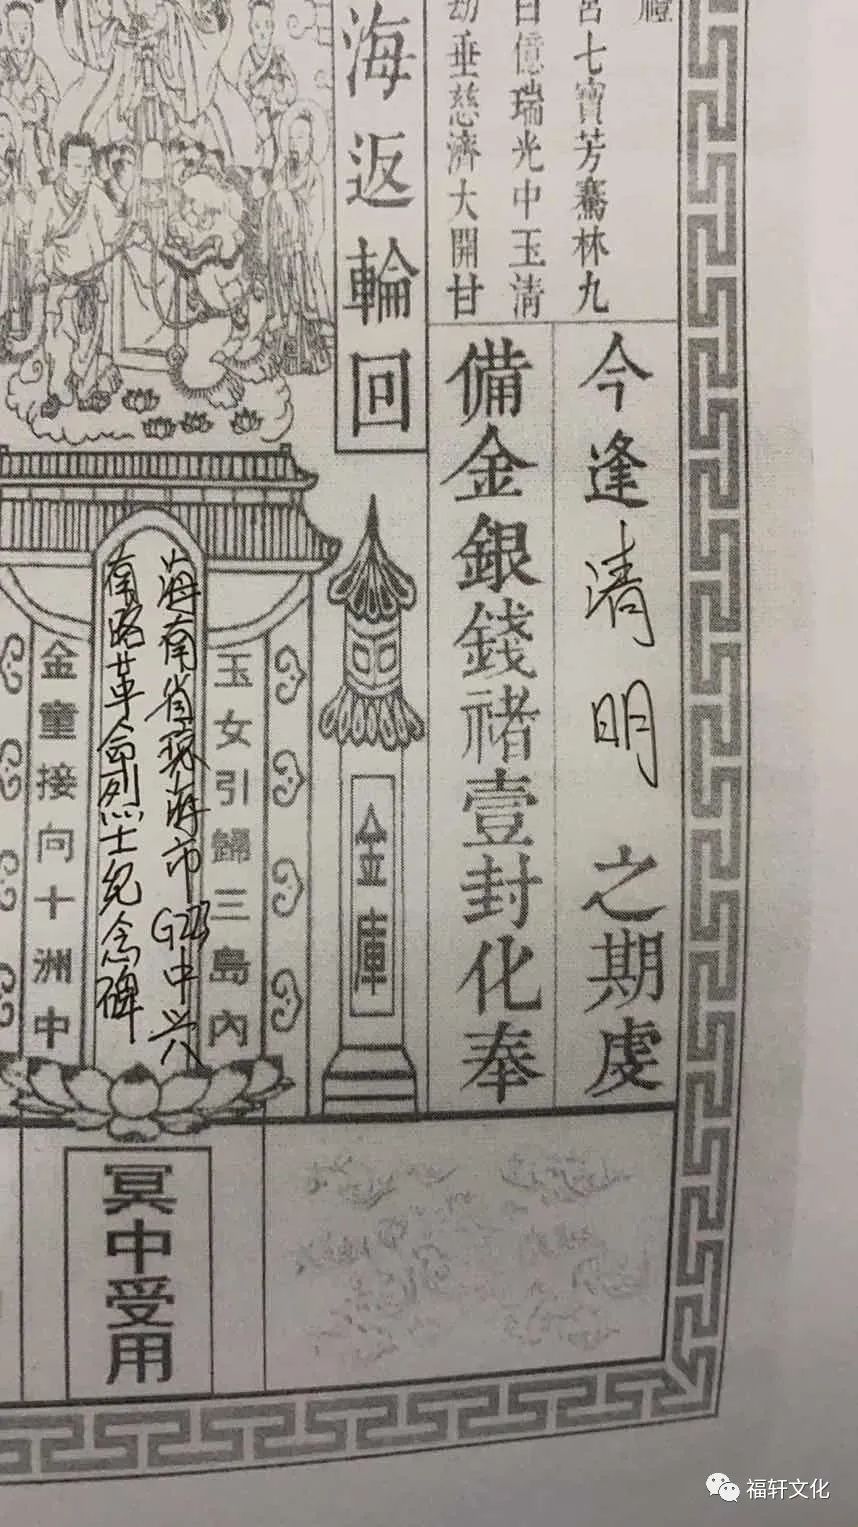 禮
宮七寶芳騫林九
百億瑞光中玉清
劫垂慈濟大開甘
今逢清明之期虔
備金銀錢褚壹封化奉
海返輪回
金庫
玉女引歸三島內
海南省琼海市G223中兴
南路革命烈士纪念碑
金童接向十洲中
冥中受用
福轩文化